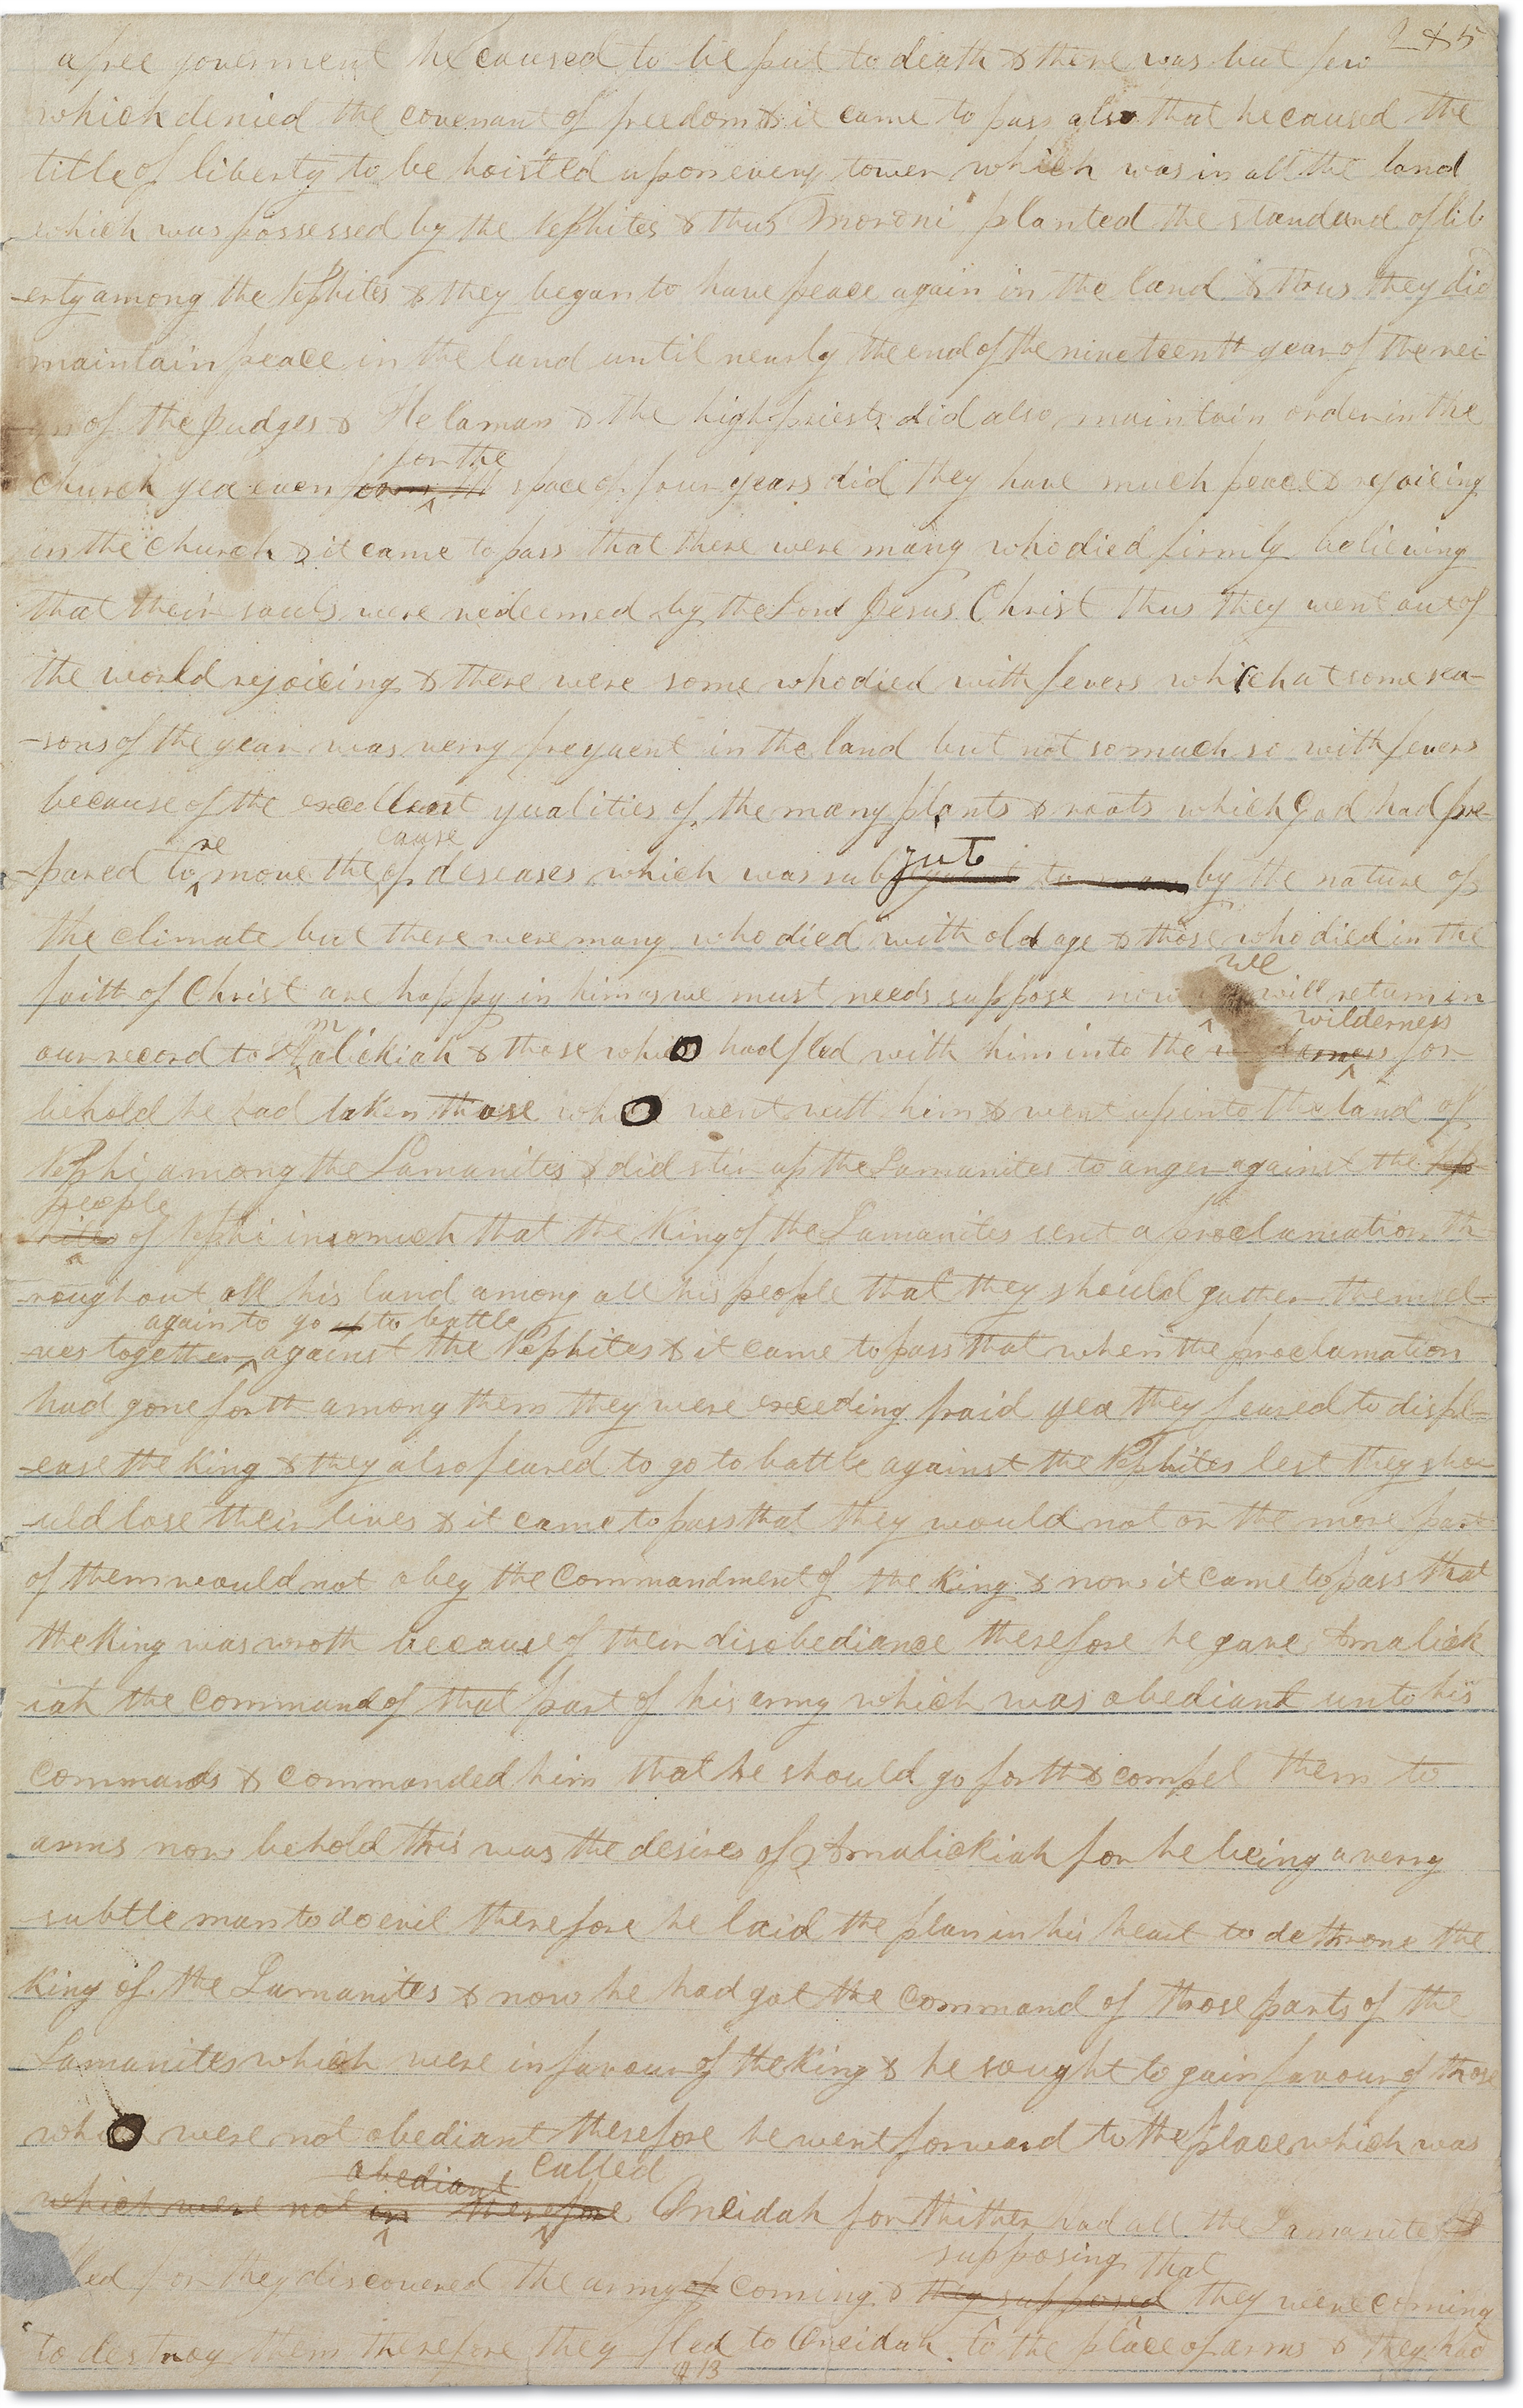 2 & 5
a free goverment he caused to be put to death & there was but few
which denied the covenant of freedom & it came to pass also that he caused the
title of liberty to be hoisted upon every tower which was in all the land
which was possessed by the Nephites & thus Moroni planted the standard of lib
-erty among the Nephites & they began to have peace again in the land & thus they did
maintain peace in the land until nearly the end of the nineteenth year of the rei-
gn of the Judges & Helaman & the high priests did also maintain order in the
for the
church yea even space of four years did they have much peace & rejoicing
in the church & it came to pass that there were many who died firmly believing
that their souls were redeemed by the Lord Jesus Christ thus they went out of
the world rejoicing & there were some who died with fevers which at some sea-
-sons of the year was verry frequent in the land but not so much so with fevers
because of the excellent qualities of the many plants & roots which God had pre-
re cause
-pared to move the of deseases which was sub to man by the nature of
ject
the climate but there were many who died with old age & those who died in the
we
faith of Christ are happy in him as we must needs suppose now will return in
m wilderness
our record to Amalickiah & those who had fled with him into the for
behold he had taken those who went with him & went up into the land of
Nephi among the Lamanites & did stir up the Lamanites to anger against the Nep
people
hites of Nephi insomuch that the King of the Lamanites sent a proclamation th
roughout all his land among all his people that they should gather themsel-
again to go to battle
ves together against the Nephites & it came to pass that when the proclamation
had gone forth among them they were exceeding fraid yea they feared to displ=
-ease the King & they also feared to go to battle against the Nephites lest they sho
-uld lose their lives & it came to pass that they would not or the more part
of them would not obey the commandment of the King & now it came to pass that
the King was wroth because of their disobediance therefore he gave Amalick
-iah the command of that part of his army which was obediant unto his
commands & commanded him that he should go forth & compel them to
arms now behold this was the desires of Amalickiah for he being a verry
subtle man to do evil therefore he laid the plan in his heart to dethrone the
King of the Lamanites & now he had got the command of those parts of the
Lamanites which were in favour of the King & he sought to gain favour of those
who were not obediant therefore he went forward to the place which was
obediant called
which were not in therefore Oneidah for thither had all the Lamanites
supposing that
led for they discovered the army of coming & they supposed they were coming
to destroy them therefore they fled to Oneidah to the place of arms & they had